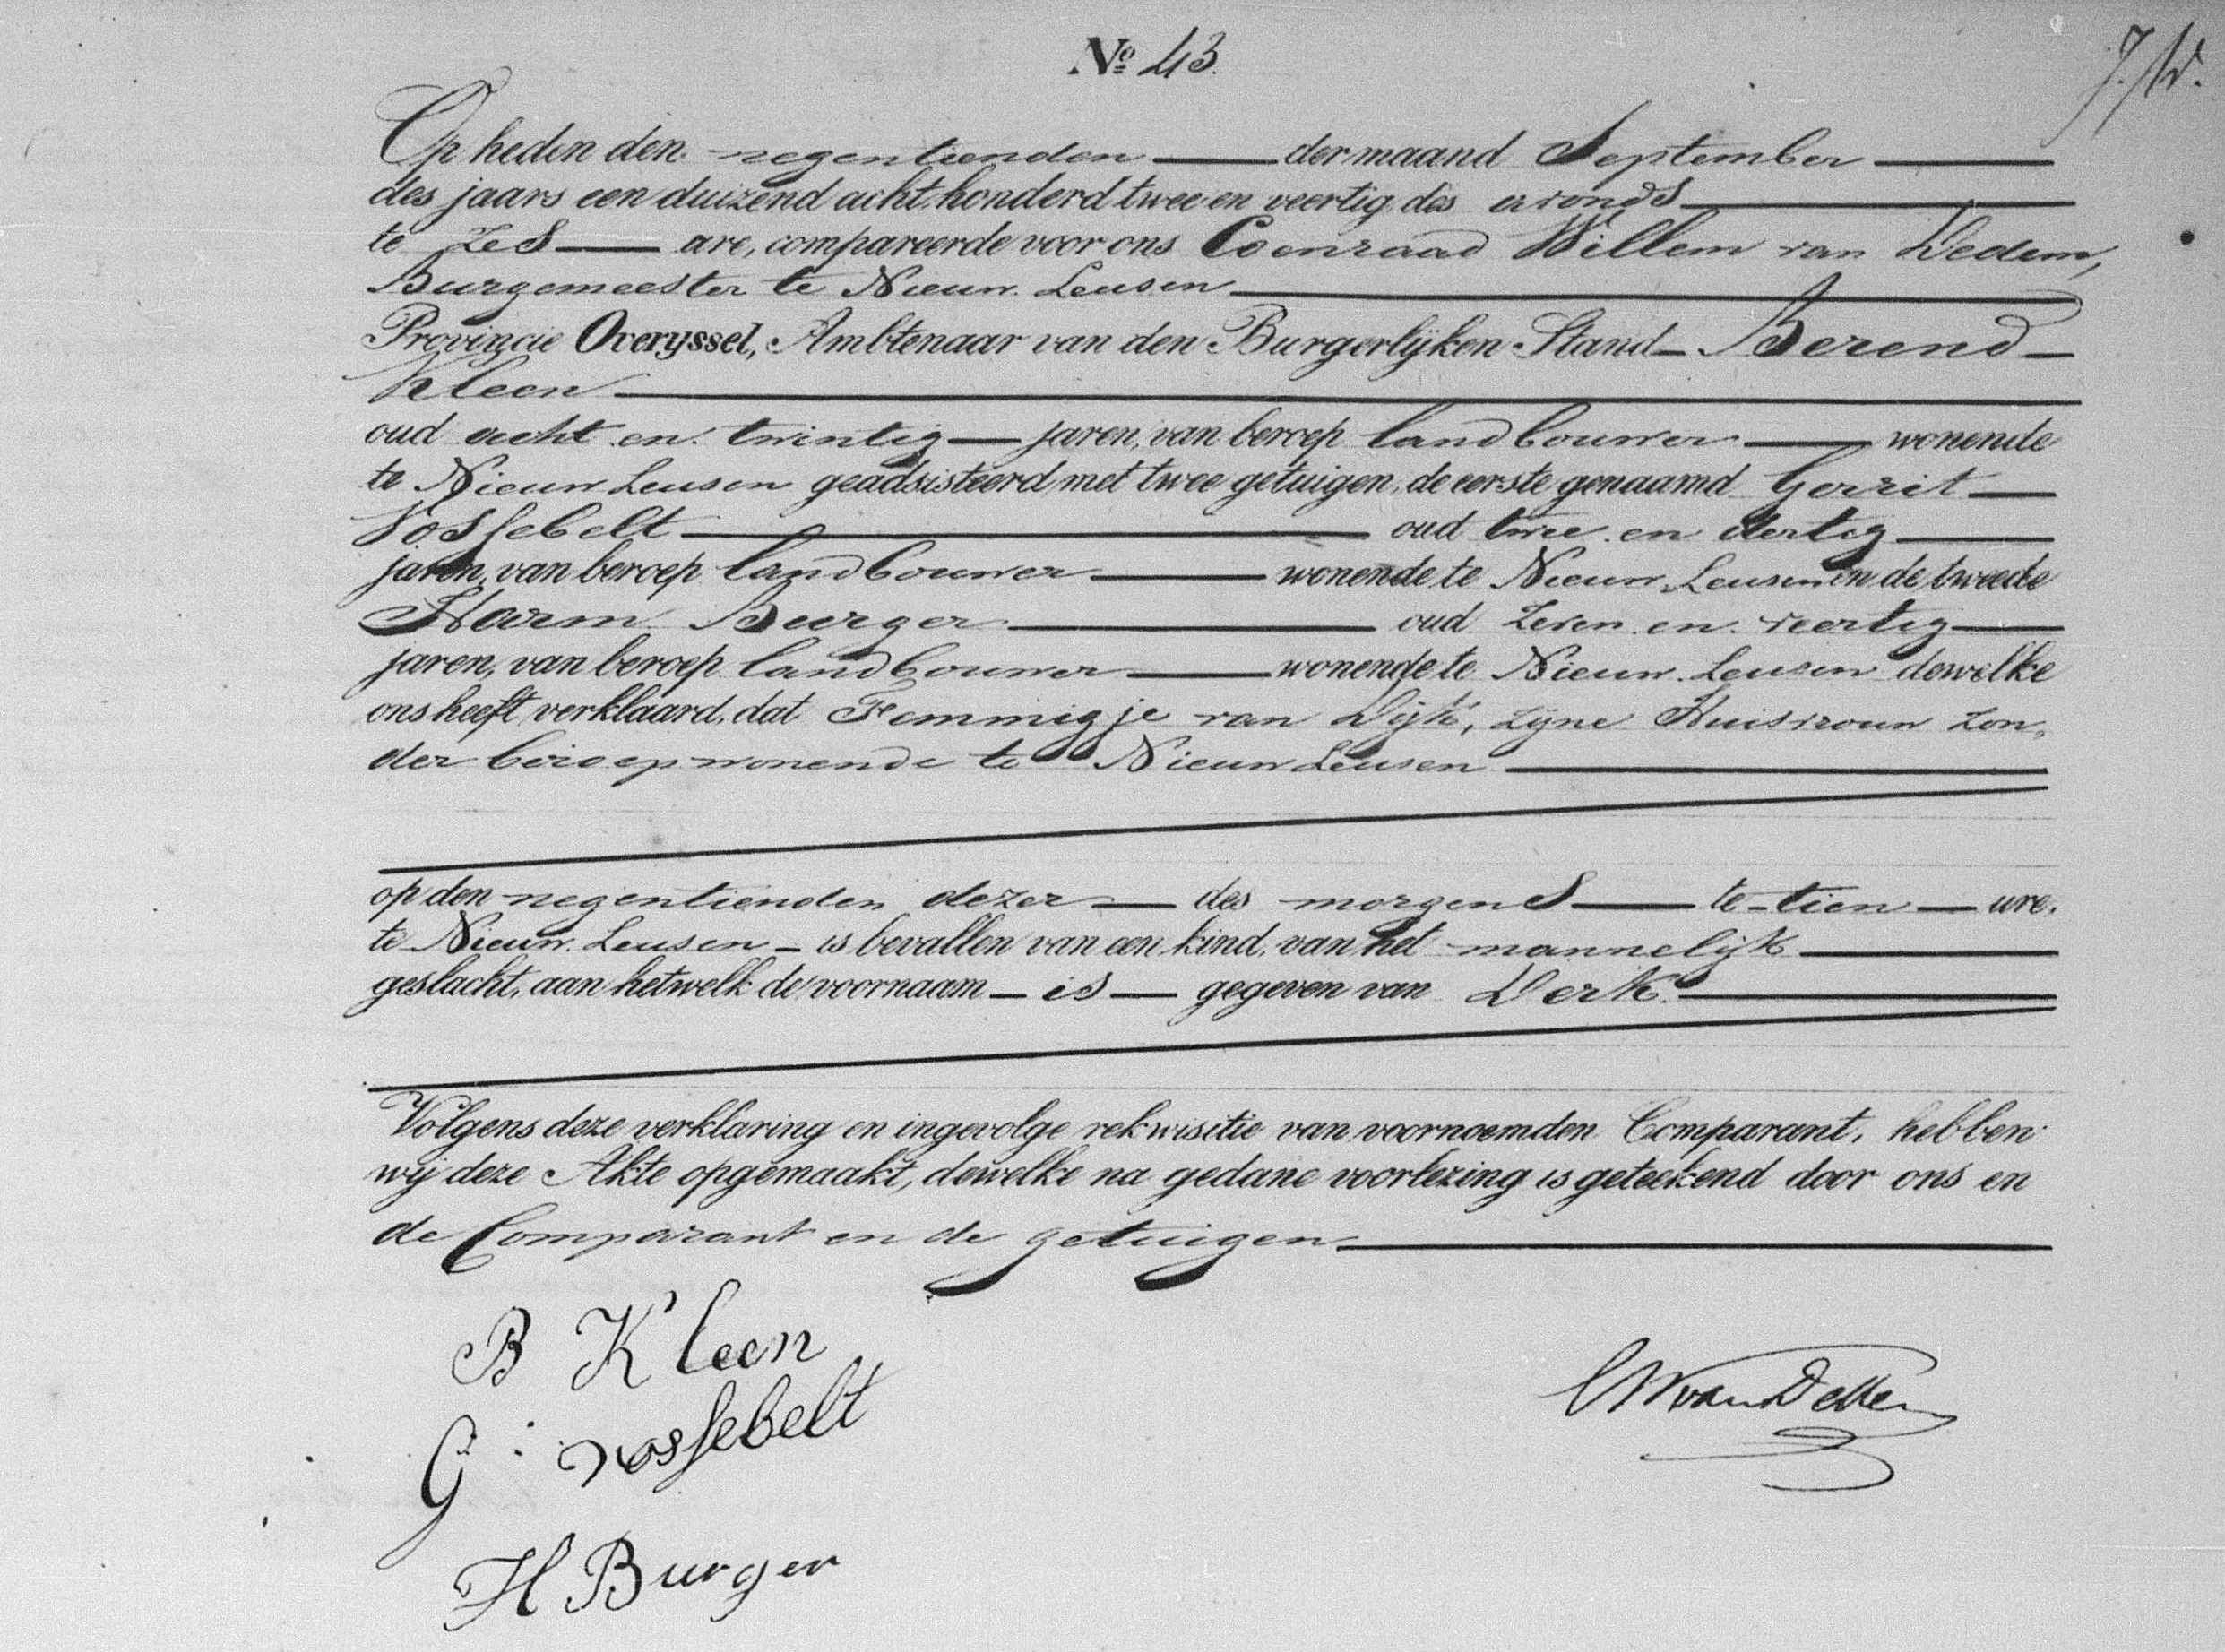 Nº 43.
Op heden den negentienden der maand September
des jaars een duizend acht honderd twee en veertig des avonds
te zes ure, compareerde voor ons Coenraad Willem van Dedem,
Burgemeester te Nieuw Leusen
Provincie Overyssel, Ambtenaar van den Burgerlijken Stand Berend
Kleen
oud acht en twintig jaren, van beroep landbouwer wonende
te Nieuw Leusen geadsisteerd met twee getuigen, de eerste genaamd Gerrit
Vossebelt oud twee en dertig
jaren, van beroep landbouwer wonende te Nieuw Leusen en de tweede
Harm Burger oud zeven en veertig
jaren, van beroep landbouwer wonende te Nieuw Leusen dewelke
ons heeft verklaard, dat Femmigje van Dijk, zijne Huisvrouw zon-
der beroep wonende te Nieuw Leusen
op den negentienden dezer des morgens te tien ure,
te Nieuw Leusen is bevallen van een kind, van het mannelijk
geslacht, aan hetwelk de voornaam is gegeven van Derk.
Volgens deze verklaring en ingevolge rekwisitie van voornoemden Comparant, hebben
wij deze Akte opgemaakt, dewelke na gedane voorlezing is geteekend door ons en
de Comparant en de getuigen
B Kleen
CW van Dedem
G: vossebelt
H Burger